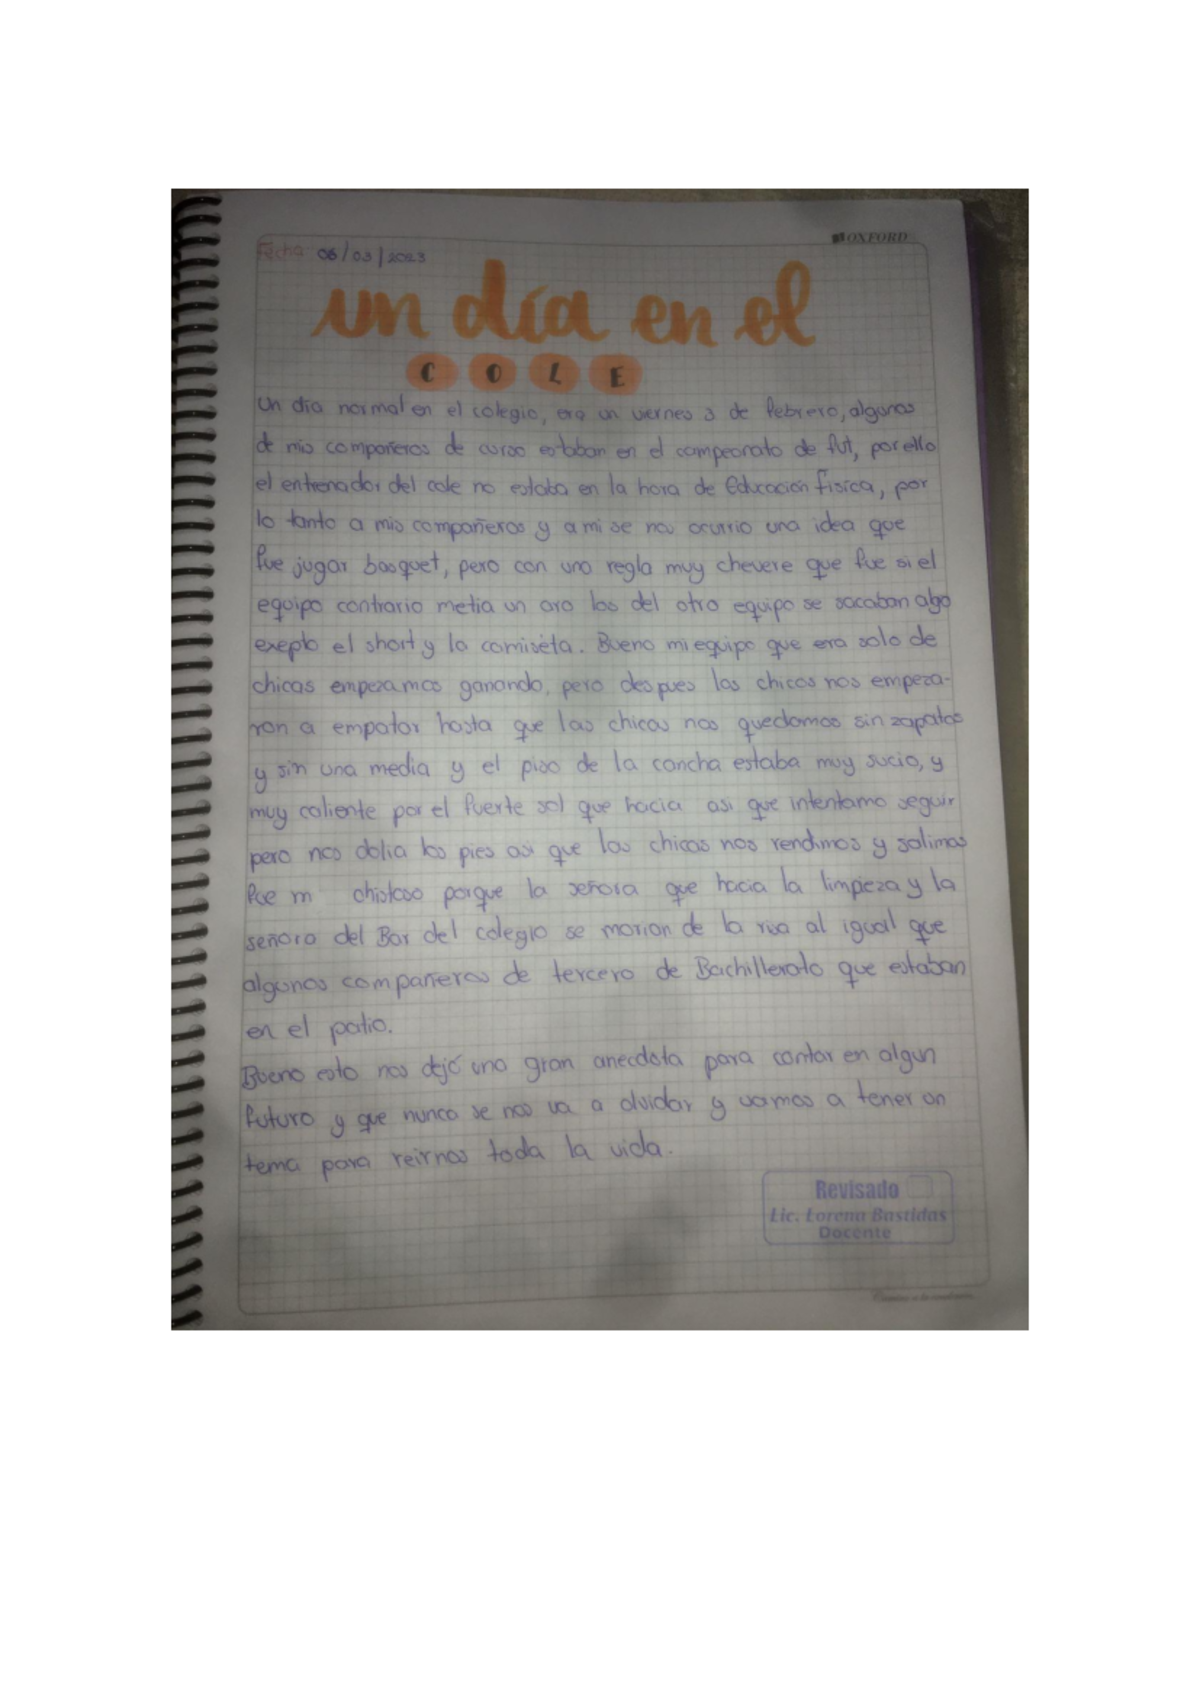 OXFORD
Fecha 06/03/2023
un día en el
COLE
Un día normal en el colegio, era un viernes 3 de febrero, algunos
de mis compañeros de curso estaban en el campeonato de fut, por ello
el entrenador del cole no estaba en la hora de Educación física, por
lo tanto a mis compañeros y a mi se nos ocurrio una idea que
fue jugar basquet, pero con una regla muy chevere que fue si el
equipo contrario metia un aro los del otro equipo se sacaban algo
exepto el short y la camiseta. Bueno mi equipo que era solo de
chicas empezamos ganando, pero despues los chicos nos empeza-
ron a empatar hasta que las chicas nos quedamos sin zapatos
y sin una media y el piso de la cancha estaba muy sucio, y
muy caliente por el fuerte sol que hacia asi que intentamo seguir
pero nos dolia los pies asi que las chicas nos rendimos y salimos
fue m chistoso porque la señora que hacia la limpieza y la
señora del Bar del colegio se morian de la risa al igual que
algunos compañeros de tercero de Bachillerato que estaban
en el patio.
Bueno esto nos dejó una gran anecdota para contar en algun
futuro y que nunca se nos va a olvidar y vamos a tener un
tema para reirnos toda la vida.
Revisado
Lic. Lorena Bastidas
Docente